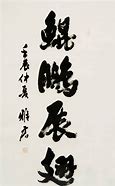 鯤鵬展翅
壬辰仲夏